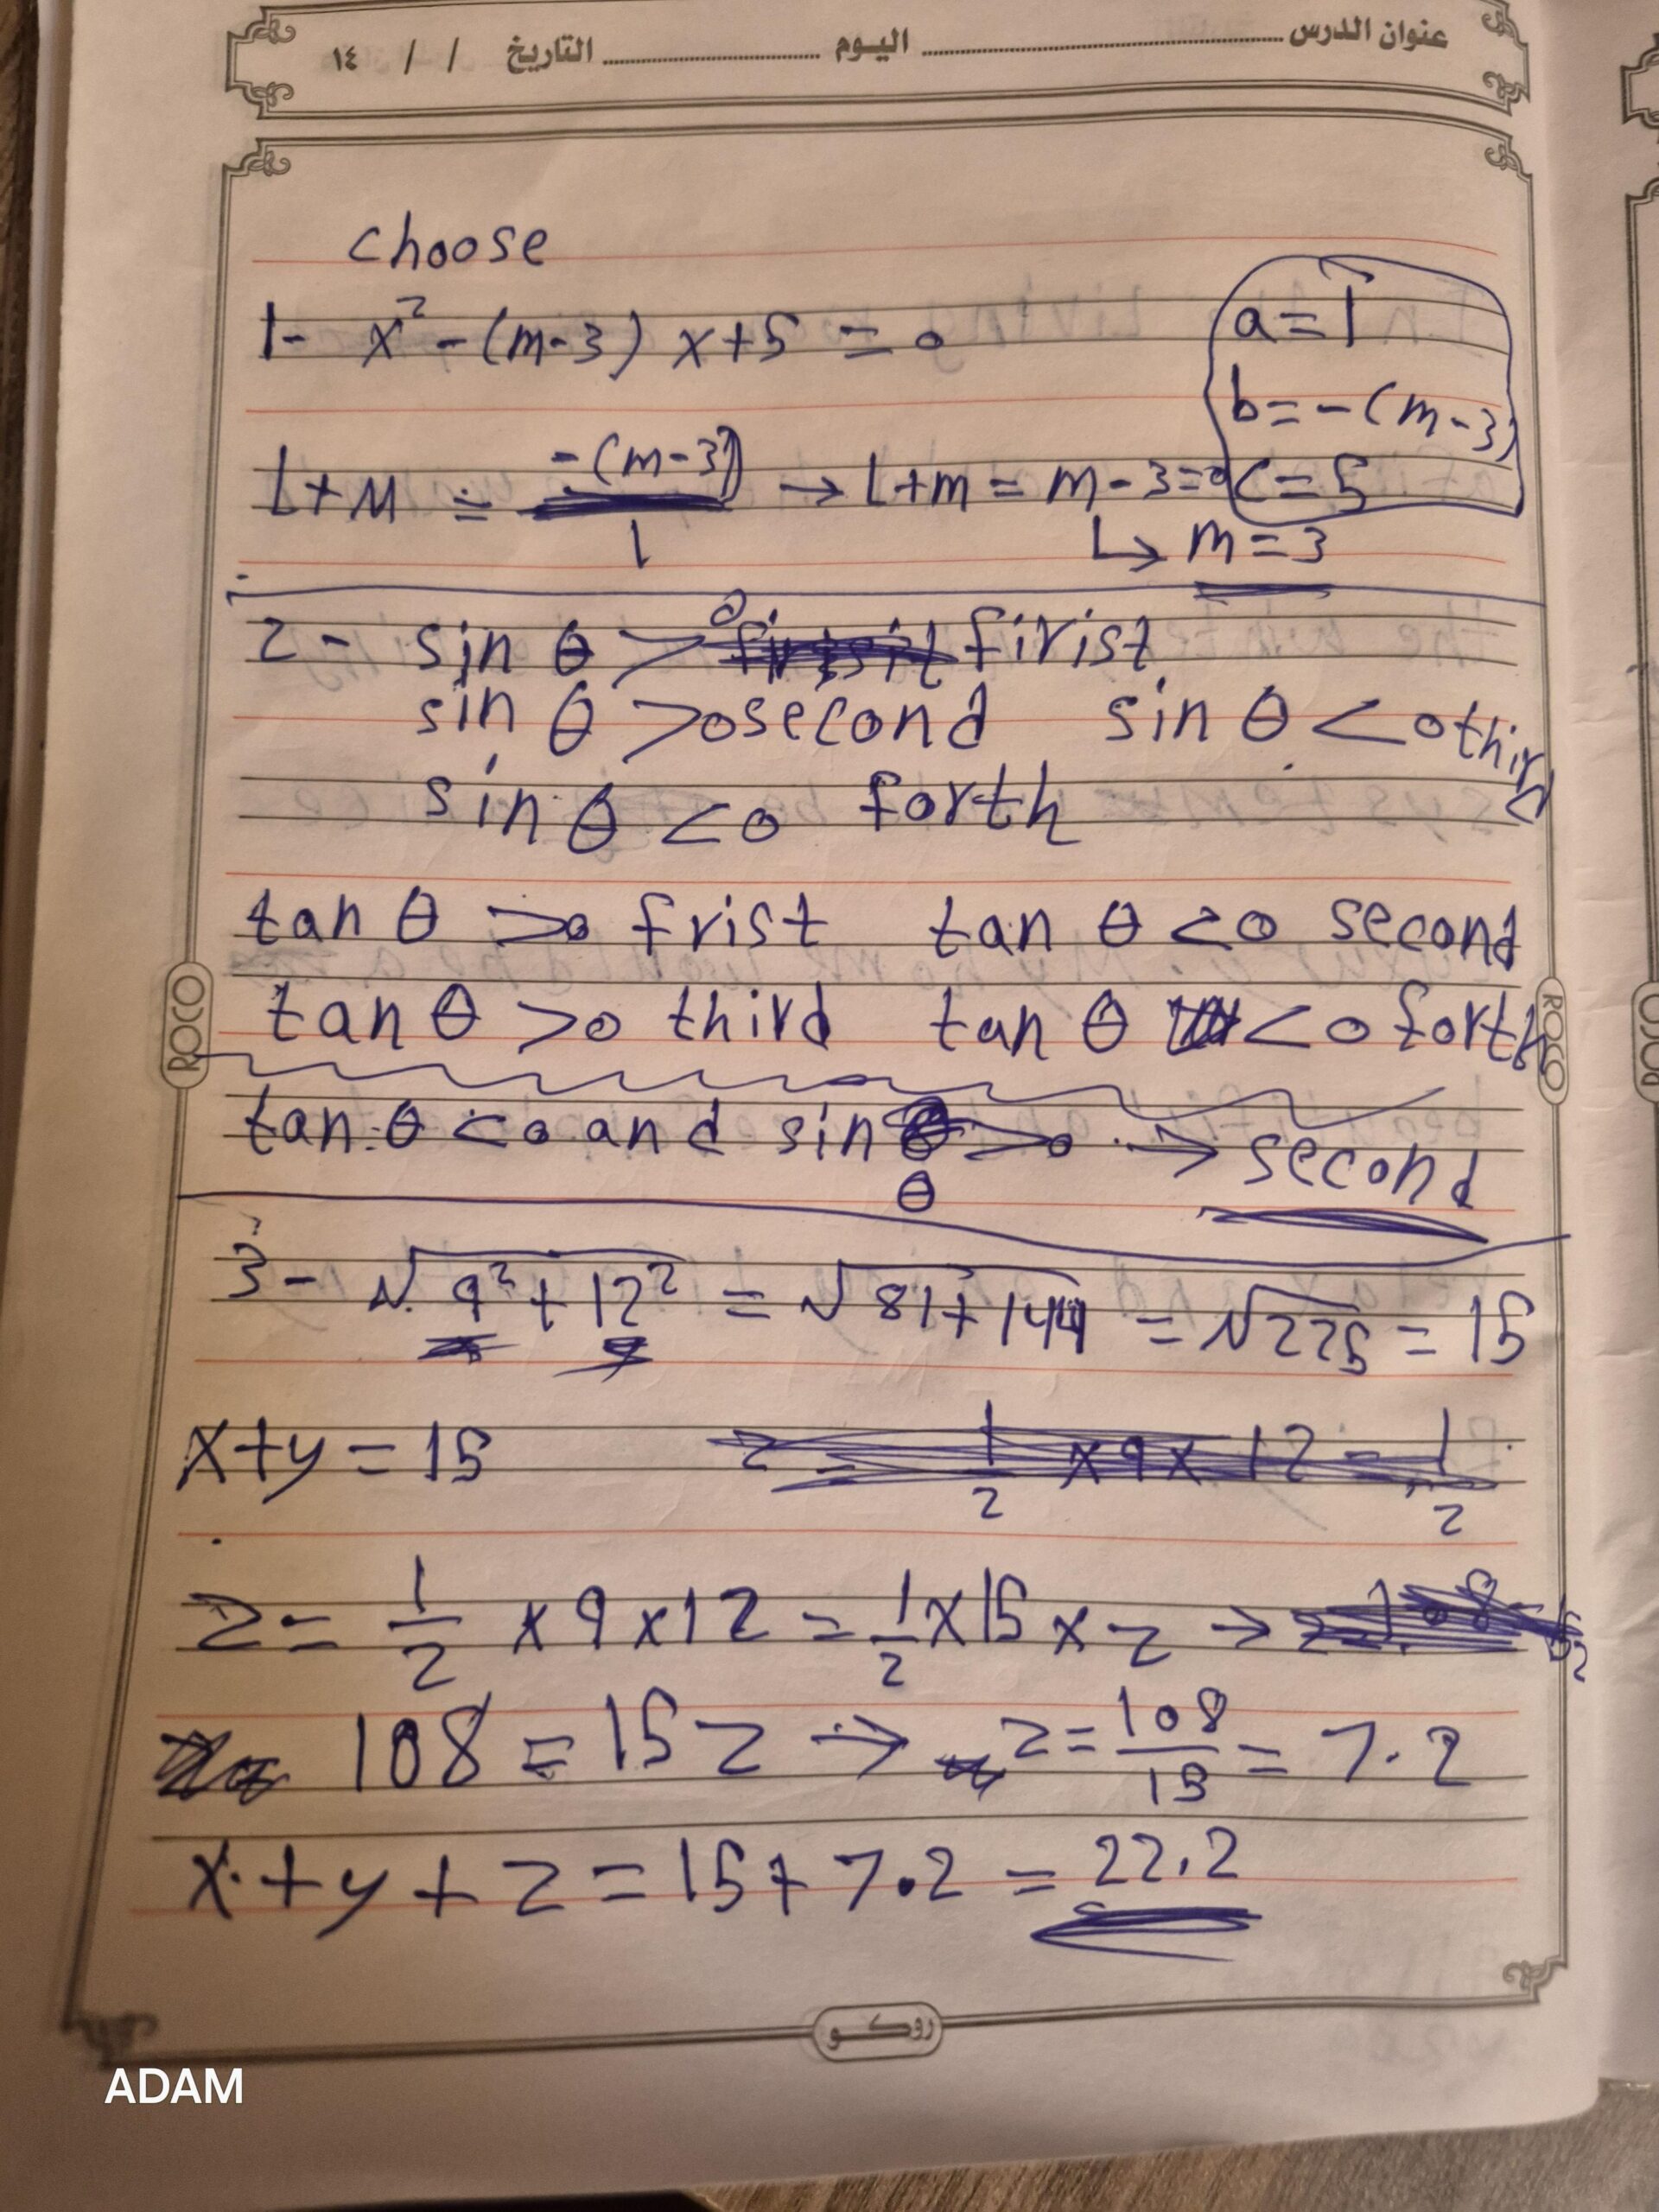 عنوان الدرس ........ اليوم ........ التاريخ / / ١٤
choose
1- x² - (m-3) x+5 = 0
a=1
b=-(m-3)
c=5
L+M = -(m-3) / 1 → L+m = m-3=0
↳ m=3
2- sin θ >0 firist
sin θ >0 second sin θ <0 third
sin θ <0 forth
tan θ >0 frist tan θ <0 second
tan θ >0 third tan θ <0 forth
tan θ <0 and sin θ >0 → second
3- √9²+12² = √81+144 = √225 = 15
x+y=15
z= 1/2 ×9×12 = 1/2 ×15×z →
108 = 15z → z= 108/15 = 7.2
x+y+z=15+7.2 = 22.2
ROCO
ROCO
روكو
ADAM